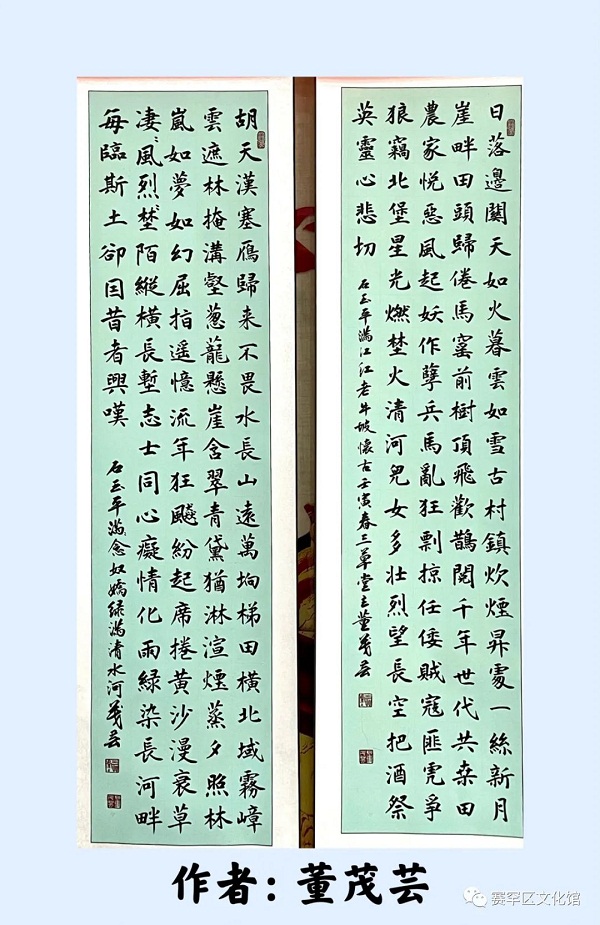 日落邊關天如火暮雲如雪古村鎮炊煙昇處一絲新月
崖畔田頭歸倦馬窰前樹頂飛歡鵲閱千年世代共桑田
農家悅惡風起妖作孽兵馬亂狂剽掠任倭賊寇匪霓爭
狼竊北堡星光燃埜火清河兒女多壯烈望長空把酒祭
英靈心悲切
石玉平滿江江老牛坡懷古壬寅春三草堂主董茂芸
胡天漢塞鴈歸来不畏水長山遠萬坰梯田橫北域霧嶂
雲遮林掩溝壑蔥蘢懸崖含翠青黛猶淋渲煙蒸夕照林
嵐如夢如幻屈指遥憶流年狂飈紛起席捲黃沙漫衰草
凄〻風烈〻埜陌縱橫長塹志士同心癡情化雨綠染長河畔
每臨斯土卻因昔者興嘆
石玉平滿念奴嬌綠滿清水河茂芸
作者：董茂芸
赛罕区文化馆